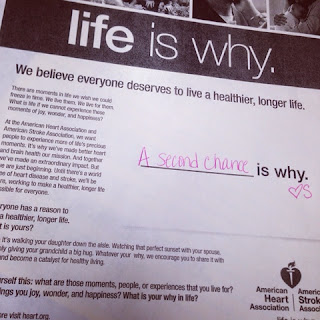 life is why.
We believe everyone deserves to live a healthier, longer life.
There are moments in life we wish we could
freeze in time. We live them. We live for them.
What is life if we cannot experience these
moments of joy, wonder, and happiness?
At the American Heart Association and
American Stroke Association, we want
people to experience more of life's precious
moments. It's why we've made better heart
and brain health our mission. And together
we've made an extraordinary impact. But
we are just beginning. Until there's a world
of heart disease and stroke, we'll be
working to make a healthier, longer life
possible for everyone.
A second chance is why.
♡S
everyone has a reason to
a healthier, longer life.
t is yours?
it's walking your daughter down the aisle. Watching that perfect sunset with your spouse,
giving your grandchild a big hug. Whatever your why, we encourage you to share it with
and become a catalyst for healthy living.
urself this: what are those moments, people, or experiences that you live for?
ngs you joy, wonder, and happiness? What is your why in life?
re visit heart.org.
American Heart Association
American Stroke Association